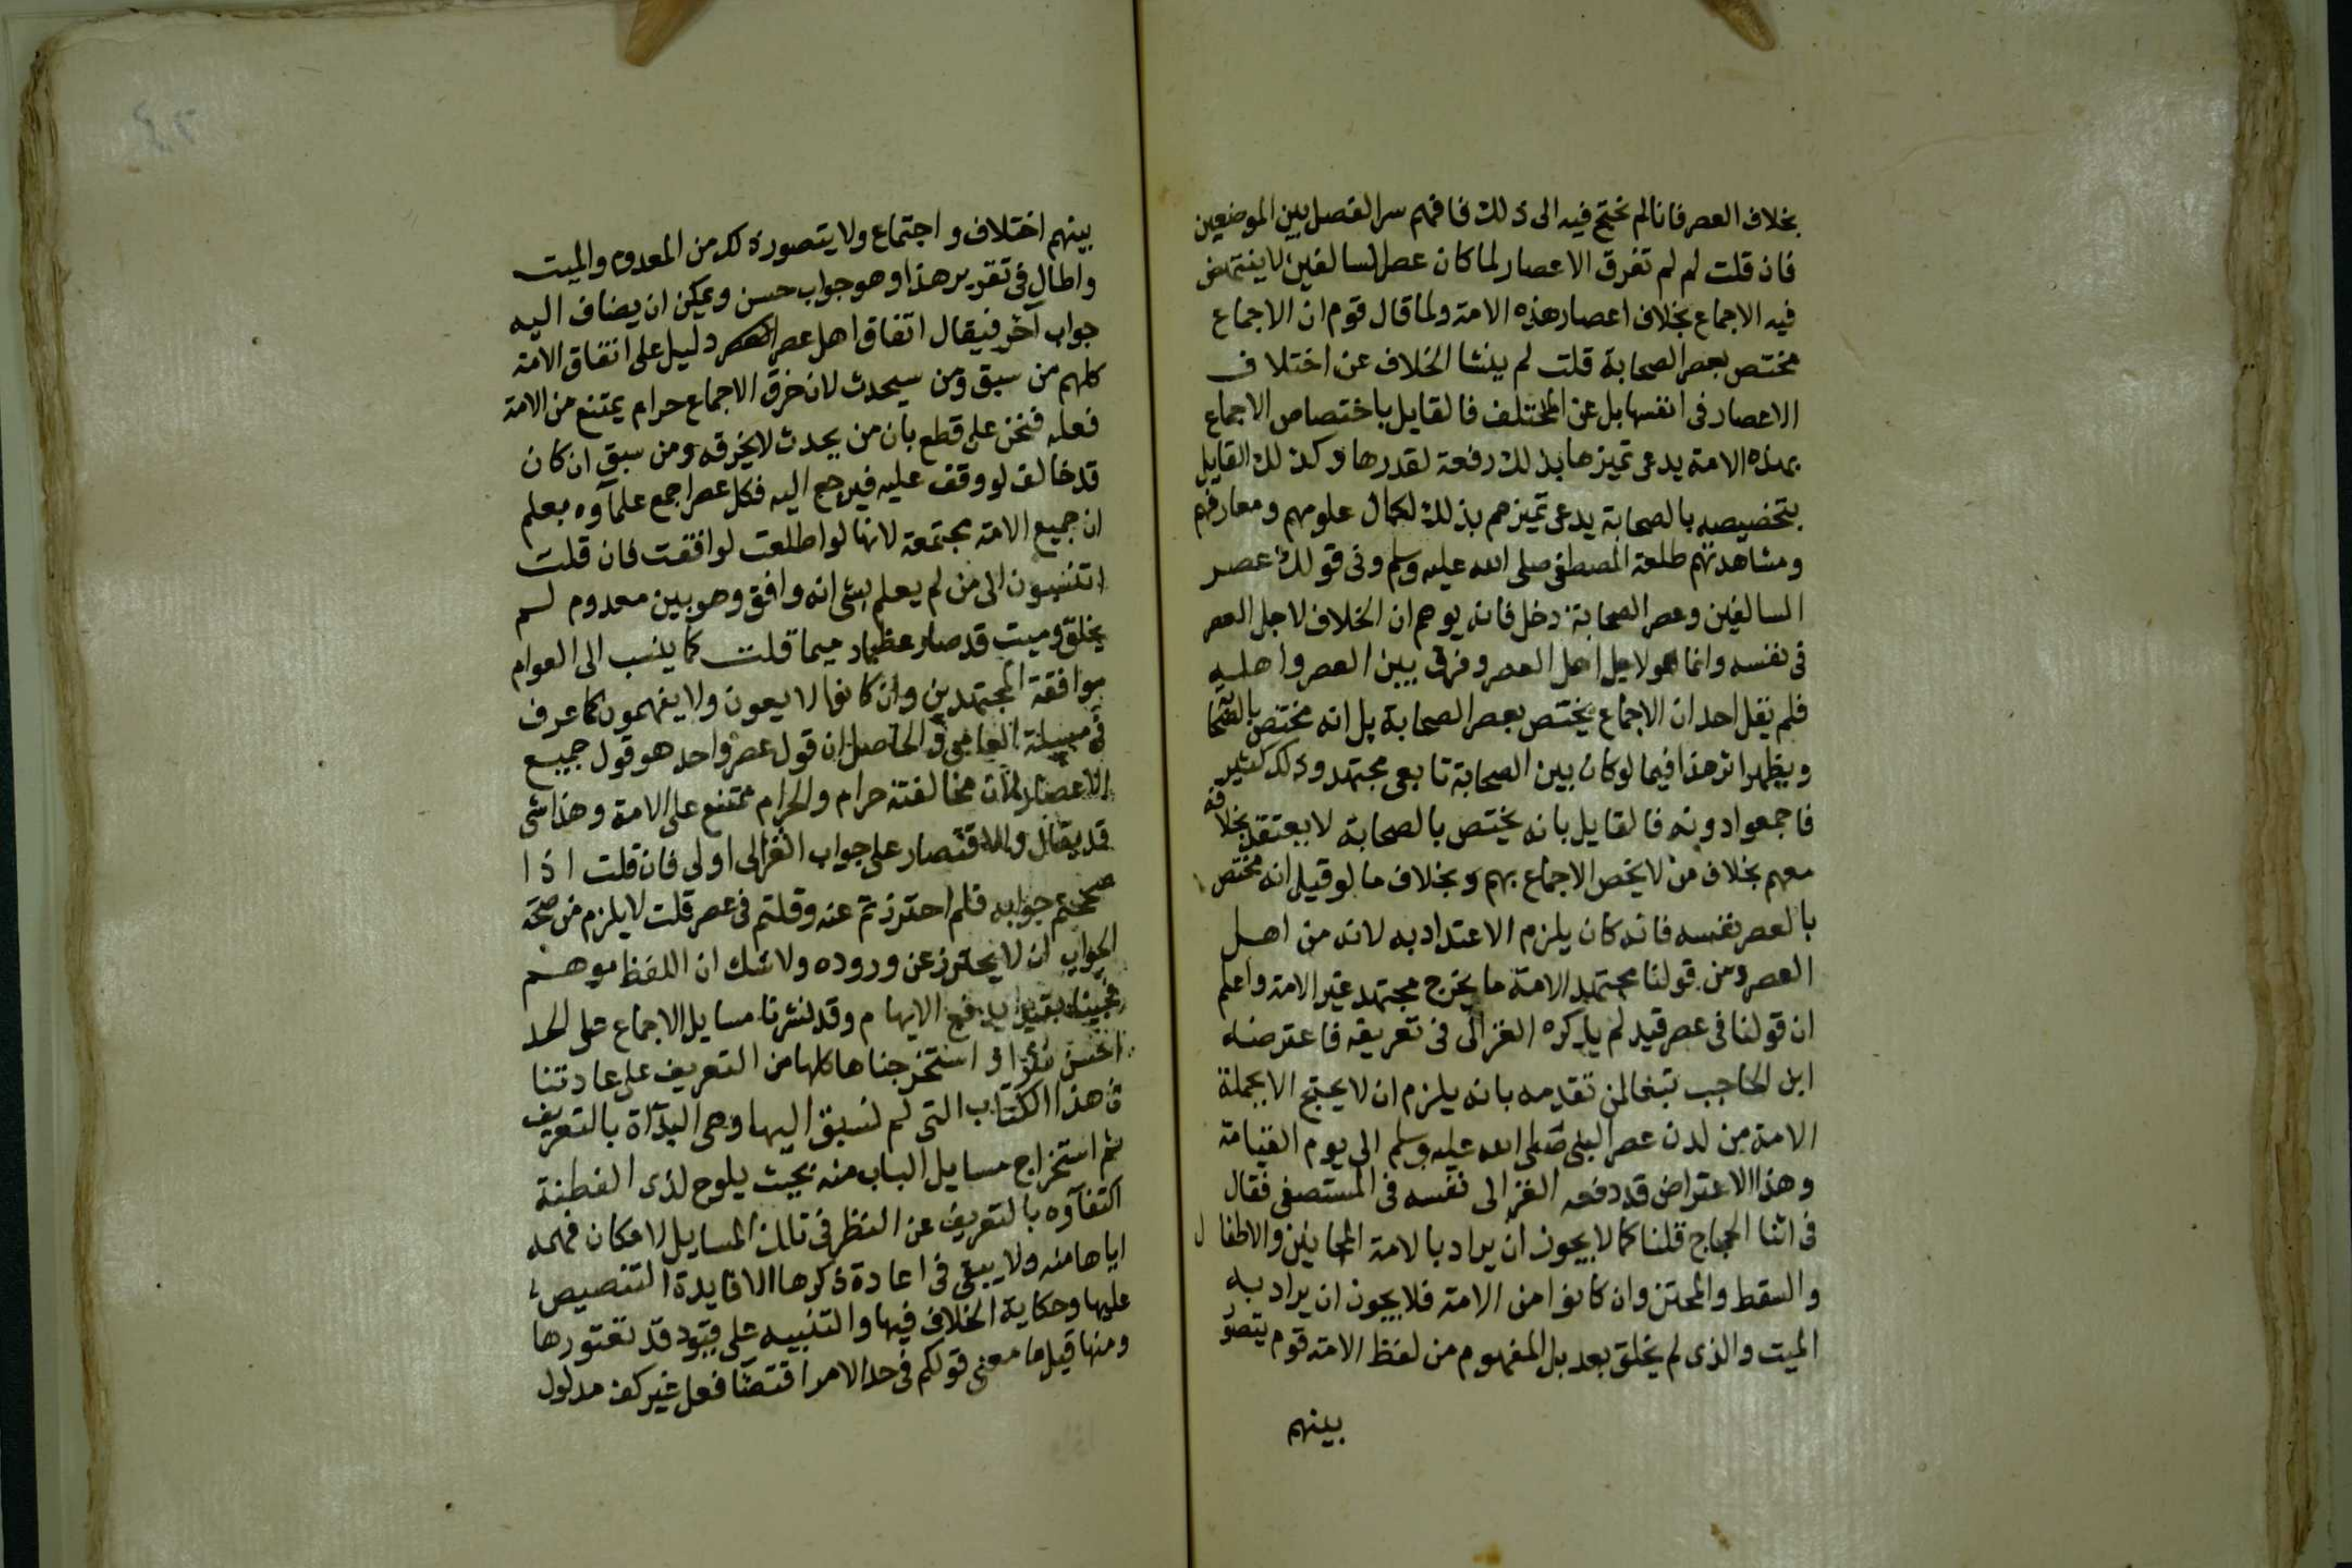 بخلاف العصر فانا لم نحتج فيه الى ذلك فافهم سر الفصل بين الموضعين
فان قلت لم لم تفرق الاعصار لما كان عصر السالفين لا ينتهض
فيه الاجماع بخلاف اعصار هذه الامة ولما قال قوم ان الاجماع
مختص بعصر الصحابة قلت لم ينشا الخلاف عن اختلاف
الاعصار فى انفسها بل عن المختلف فالقايل باختصاص الاجماع
بهذه الامة يدعى تميزها بذلك رفعة لقدرها وكذلك القايل
بتخصيصه بالصحابة يدعى تميزهم بذلك لكمال علومهم ومعارفهم
ومشاهدتهم طلعة المصطفى صلى الله عليه وسلم وفى قولك عصر
السالفين وعصر الصحابة دخل فانه يوهم ان الخلاف لاجل العصر
فى نفسه وانما هو لاجل اهل العصر وفرق بين العصر واهليه
فلم يقل احد ان الاجماع يختص بعصر الصحابة بل انه مختص بالصحابة
ويظهر اثر هذا فيما لو كان بين الصحابة تابعى مجتهد وذلك كثير
فاجمعوا دونه فالقايل بانه يختص بالصحابة لا يعتقد بخلافه
معهم بخلاف من لا يخص الاجماع بهم وبخلاف ما لو قيل انه مختص
بالعصر نفسه فانه كان يلزم الاعتداد به لانه من اهل
العصر ومن قولنا مجتهد الامة ما يخرج مجتهد غير الامة واعلم
ان قولنا فى عصر قيد لم يذكره الغزالى فى تعريفه فاعترضه
ابن الحاجب تبعا لمن تقدمه بانه يلزم ان لا يحتج الا بجملة
الامة من لدن عصر النبى صلى الله عليه وسلم الى يوم القيامة
وهذا الاعتراض قد دفعه الغزالى نفسه فى المستصفى فقال
فى اثنا الحجاج قلنا كما لا يجوز ان يراد بالامة المجانين والاطفال
والسقط والمجتن وان كانوا من الامة فلا يجوز ان يراد به
الميت والذى لم يخلق بعد بل المفهوم من لفظ الامة قوم يتصور
بينهم
بينهم اختلاف واجتماع ولا يتصور ذلك من المعدوم والميت
واطال فى تقرير هذا وهو جواب حسن ويمكن ان يضاف اليه
جواب آخر فيقال اتفاق اهل عصر دليل على اتفاق الامة
كلهم من سبق ومن سيحدث لان خرق الاجماع حرام يمتنع من الامة
فعله فنحن على قطع بان من يحدث لا يخرقه ومن سبق ان كان
قد خالف لو وقف عليه فيرجع اليه فكل عصر اجمع علماوه بعلم
ان جميع الامة مجتمعة لانها لو اطلعت لوافقت فان قلت
اتنسبون الى من لم يعلم بشى انه وافق وهو بين معدوم لم
يخلق وميت قد صار عظما رميما قلت كما ينسب الى العوام
موافقة المجتهدين وان كانوا لا يعون ولا يفهمون كما عرف
فى مسيلة العامى والحاصل ان قول عصر واحد هو قول جميع
الاعصار لان مخالفته حرام والحرام ممتنع على الامة وهذا شى
قد يقال والاقتصار على جواب الغزالى اولى فان قلت اذا
صححتم جوابه فلم احترزتم عنه وقلتم فى عصر قلت لا يلزم من صحة
الجواب ان لا يحترز عن وروده ولا شك ان اللفظ موهم
فجينا بقيد يدفع الايهام وقد نشرنا مسايل الاجماع على الحد
واستخرجناها كلها من التعريف على عادتنا
فى هذا الكتاب التى لم نسبق اليها وهى البدآة بالتعريف
ثم استخراج مسايل الباب منه بحيث يلوح لذى الفطنة
اكتفآوه بالتعريف عن النظر فى تلك المسايل لامكان فهمه
اياها منه ولا يبقى فى اعادة ذكرها الا فايدة التنصيص
عليها وحكاية الخلاف فيها والتنبيه على قيود قد تعتورها
ومنها قيل ما معنى قولكم فى حد الامر اقتضآ فعل غير كف مدلول